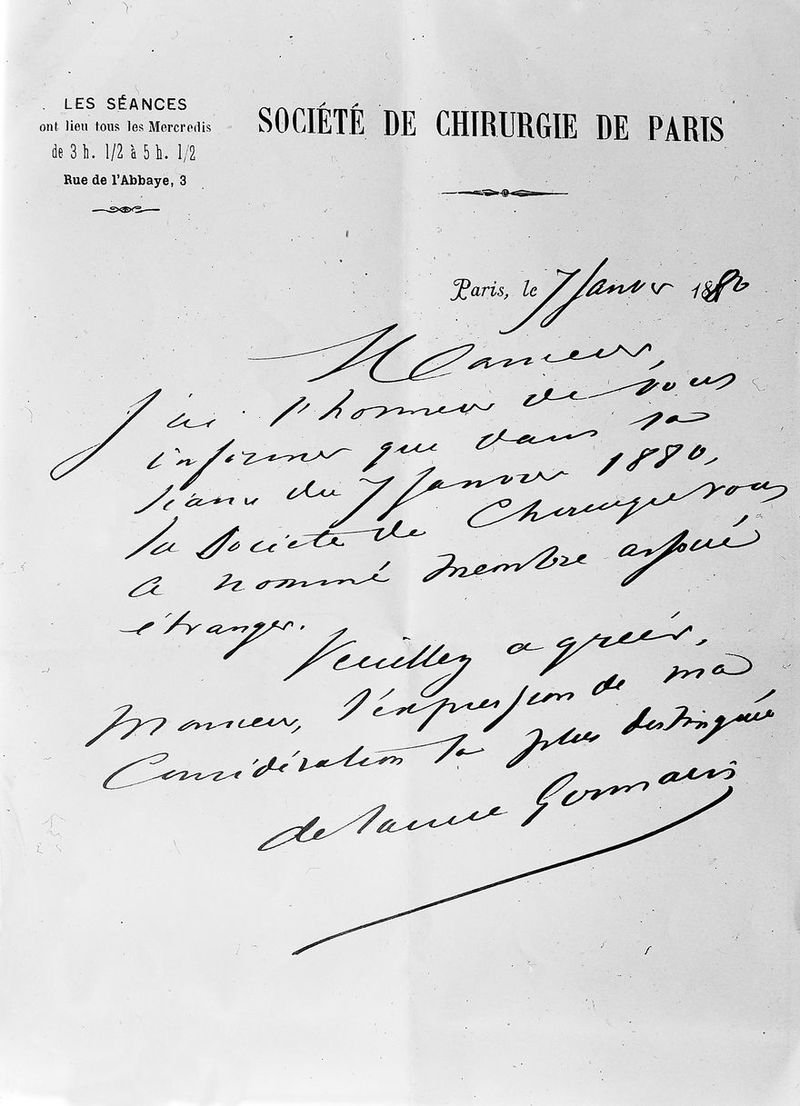 LES SÉANCES
ont lieu tous les Mercredis
de 3 h. 1/2 à 5 h. 1/2
Rue de l'Abbaye, 3
SOCIÉTÉ DE CHIRURGIE DE PARIS
Paris, le 7 Janvier 1880
Monsieur,
J'ai l'honneur de vous
informer que dans sa
séance du 7 Janvier 1880,
la Société de Chirurgie vous
a nommé membre associé
étranger.
Veuillez agréer,
Monsieur, l'expression de ma
Considération la plus distinguée